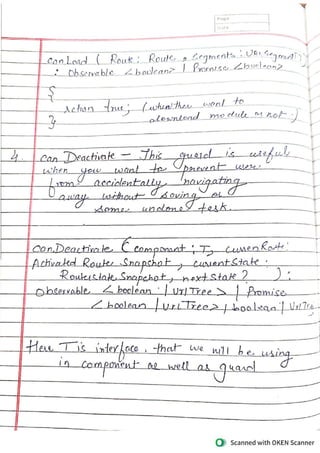 Page
Date
canLoad ( Route : Route , Segments : UrlSegment[]
: Observable <boolean> | Promise <boolean>
{
return true; ( whether want to
download module or not )
}
4. canDeactivate – This guard is useful
when you want to prevent user
from accidentally navigating
away without saving or
some undone task.
canDeactivate ( component : T, currenRoute :
Activated Router Snapshot , currentState :
RouterState Snapshot , next State ? ) :
Observable <boolean | UrlTree > | Promise
< boolean | UrlTree > | boolean | UrlTree
Here T is interface . that we will be using
in component as well as guard
Scanned with OKEN Scanner